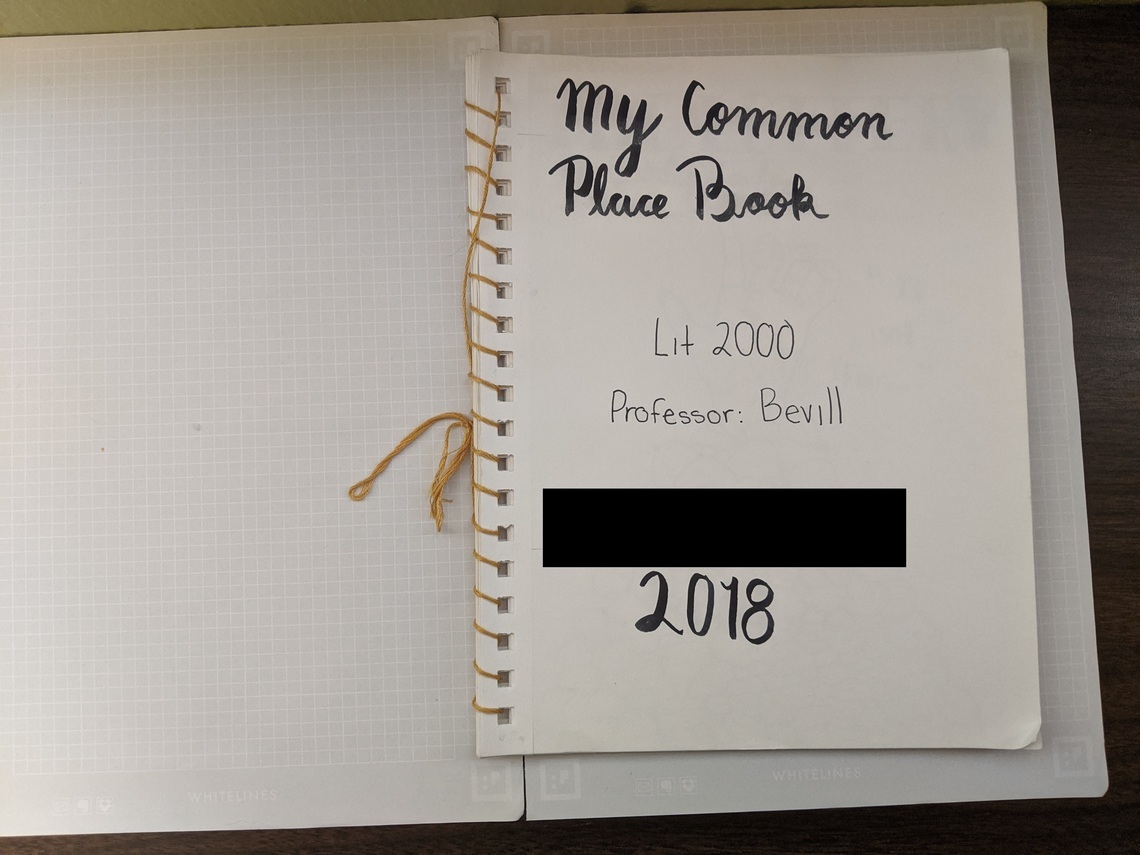 My Common
Place Book
Lit 2000
Professor: Bevill
2018
WHITELINES
WHITELINES